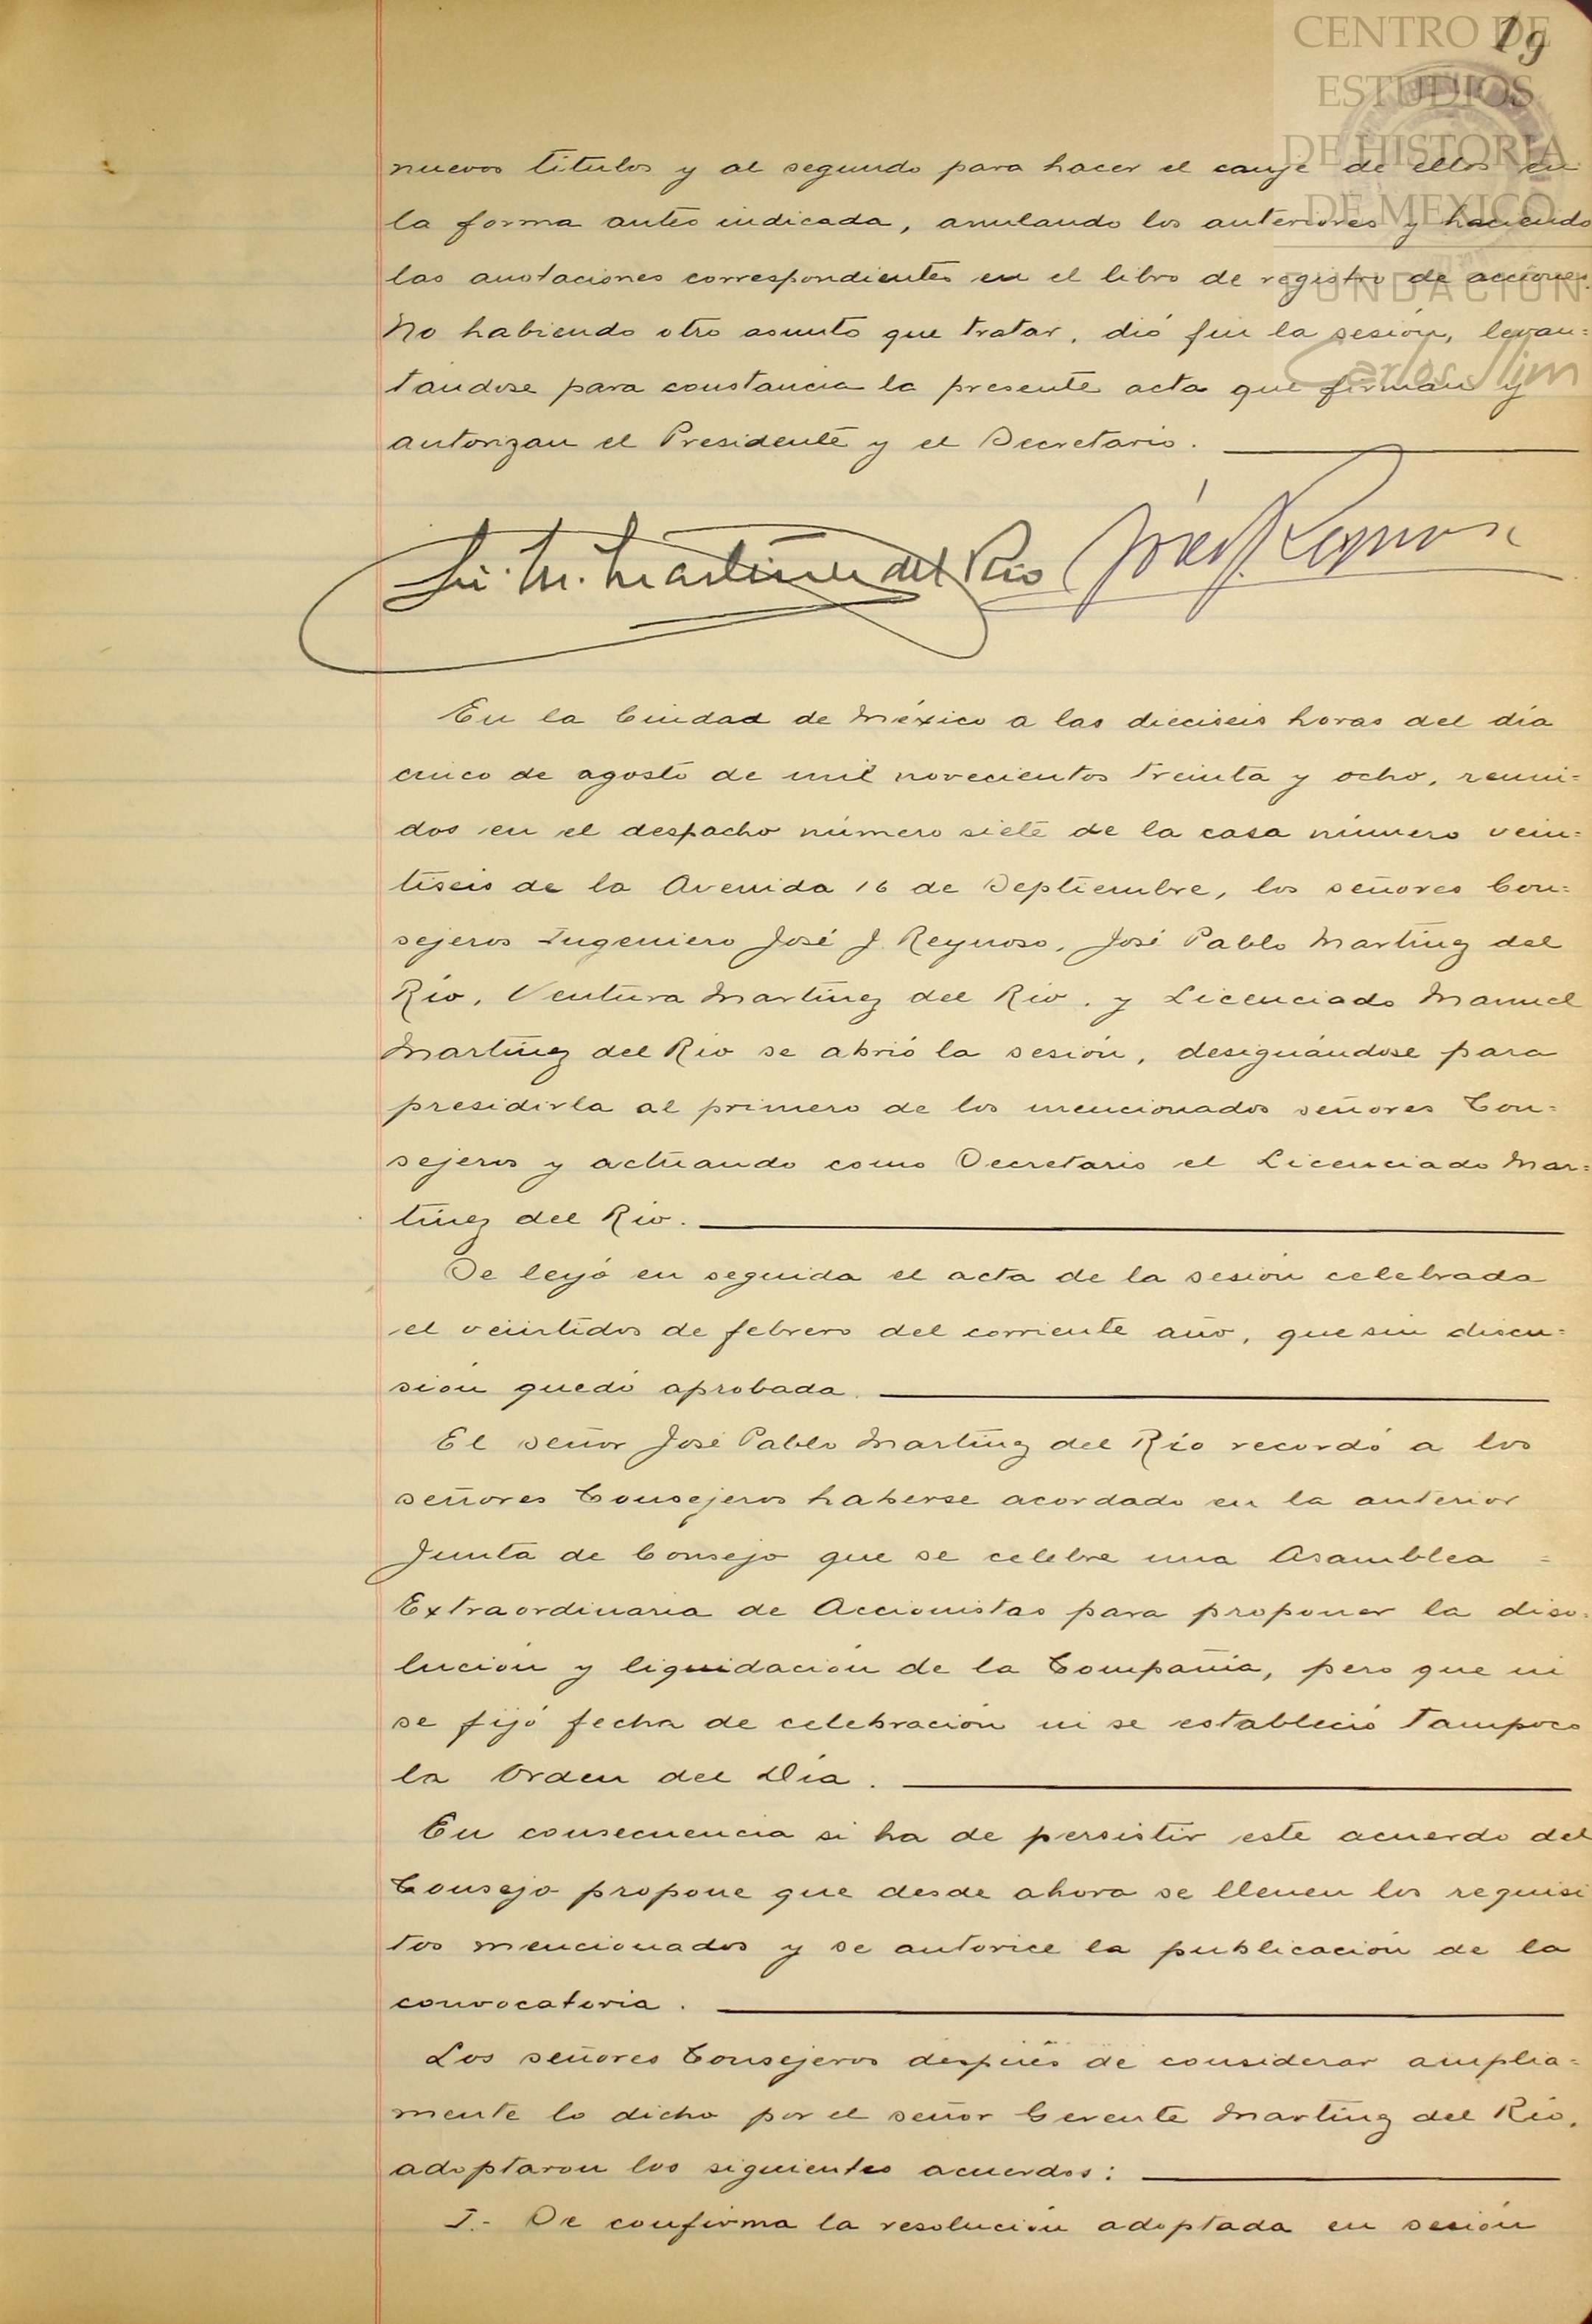 CENTRO DE
19
ESTUDIOS
DE HISTORIA
DE MEXICO
FUNDACION
Carlos Slim
nuevos titulos y al segundo para hacer el canje de ellos en
la forma antes indicada, anulando los anteriores y haciendo
las anotaciones correspondientes en el libro de registro de acciones.
No habiendo otro asunto que tratar, dió fin la sesión, levan=
tandose para constancia la presente acta que firman y
autorizan el Presidente y el Secretario.
Lic. M. Martínez del Rio José J. Reynoso
En la Ciudad de México a las dieciseis horas del día
cinco de agosto de mil novecientos treinta y ocho, reuni=
dos en el despacho número siete de la casa número vein=
tiseis de la Avenida 16 de Septiembre, los señores Con=
sejeros Ingeniero José J. Reynoso, José Pablo Martínez del
Río, Ventura Martínez del Rio, y Licenciado Manuel
Martínez del Rio se abrió la sesión, designándose para
presidirla al primero de los mencionados señores Con=
sejeros y actuando como Secretario el Licenciado Mar=
tínez del Rio.
Se leyó en seguida el acta de la sesión celebrada
el veintidos de febrero del corriente año, que sin discu=
sión quedó aprobada.
El señor José Pablo Martínez del Río recordó a los
señores Consejeros haberse acordado en la anterior
Junta de Consejo que se celebre una Asamblea =
Extraordinaria de Accionistas para proponer la diso=
lución y liquidación de la Compañia, pero que ni
se fijó fecha de celebración ni se estableció tampoco
la Orden del Día.
En consecuencia si ha de persistir este acuerdo del
Consejo propone que desde ahora se llenen los requisi
tos mencionados y se autorice la publicación de la
convocatoria.
Los señores Consejeros después de considerar amplia=
mente lo dicho por el señor Gerente Martínez del Río,
adoptaron los siguientes acuerdos:
I.- Se confirma la resolución adoptada en sesión